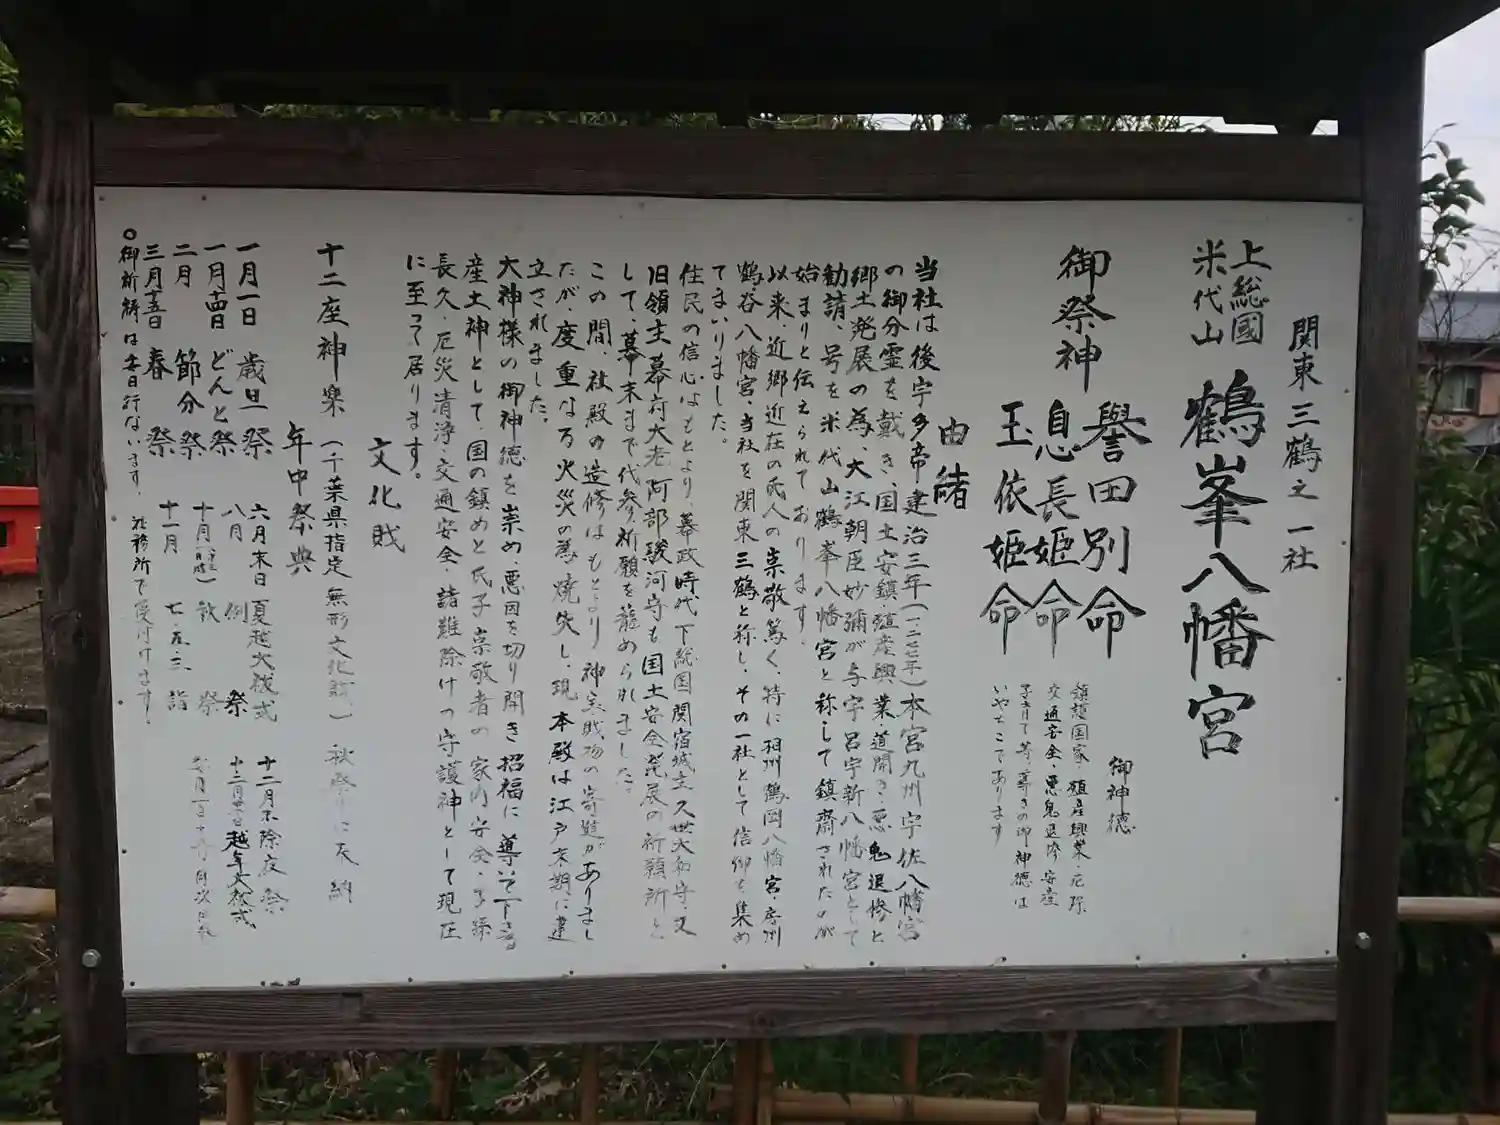 関東三鶴之一社
上総國
米代山
鶴峯八幡宮
御祭神
誉田別命
息長姫命
玉依姫命
御神徳
鎮護国家、殖産興業・厄除
交通安全・悪鬼退侈・安産
子育て等、尊きの御神徳は
いやちこであります
由緒
当社は後宇多帝建治三年(一二七七年)本宮九州宇佐八幡宮
の御分霊を戴き、国土安鎮、殖産興業・道開き・悪鬼退侈と
郷土発展の為、大江朝臣妙彌が与宇呂宇新八幡宮として
勧請、号を米代山鶴峯八幡宮と称して鎮齋されたのが
始まりと伝えられております。
以来、近郷近在の氏人の崇敬篤く、特に羽州鶴岡八幡宮・房州
鶴谷八幡宮、当社を関東三鶴と称し、その一社として信仰を集め
てまいりました。
住民の信心はもとより、幕政時代下総国関宿城主久世大和守、又
旧領主、幕府大老阿部駿河守も国土安全発展の祈願所と
して、幕末まで代参、祈願を籠められました。
この間、社殿の造修はもとより神宝財物の寄進がありまし
たが、度重なる火災の為焼失し、現本殿は江戸末期に建
立されました。
大神様の御神徳を崇め、悪因を切り開き招福に導いて下さる
産土神として、国の鎮めと氏子崇敬者の家内安全・子孫
長久・厄災清浄・交通安全・諸難除けの守護神として現在
に至って居ります。
文化財
十二座神楽(千葉県指定無形文化財)秋祭りに奉納
年中祭典
一月一日 歳旦祭 六月末日 夏越大祓式 十二月末 除夜祭
一月十四日 どんと祭 八月 例祭 越年大祓式
二月 節分祭 十月 秋祭
三月十五日 春祭 十一月 七・五・三詣
○御祈祷は毎日行ないます。社務所で受付けます。